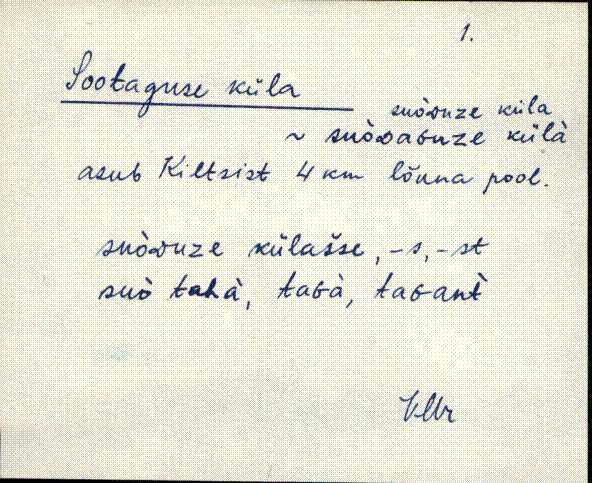 1.
Sootaguse küla
suò͔uze küla
~ suò͔aɢuze külà
asub Kiltsist 4 km lõuna pool.
suò͔uze külašse, -s, -st
suò tahà, taɢà, taɢant̀